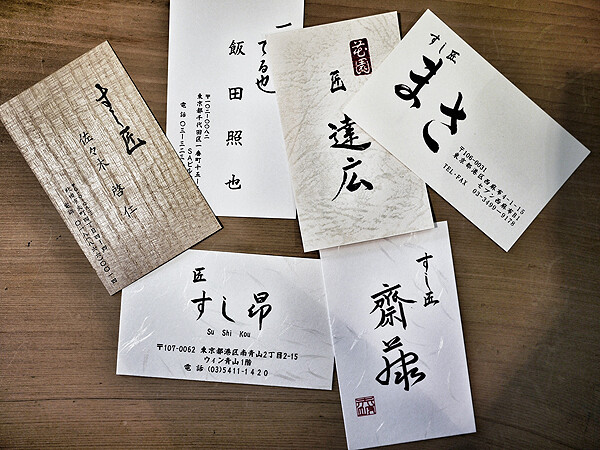 すし匠
佐々木 啓仁
てる也
飯田照也
東京都千代田区一番町十五ー
SAビル
花園
匠
達広
すし匠
まさ
〒106-0031
東京都港区西麻布4-1-15
セブン西麻布B1
TEL・FAX 03-3499-9178
匠
すし昂
Su Shi Kou
〒107-0062 東京都港区南青山2丁目2-15
ウィン青山1階
電話 (03)5411-1420
すし匠
齋藤